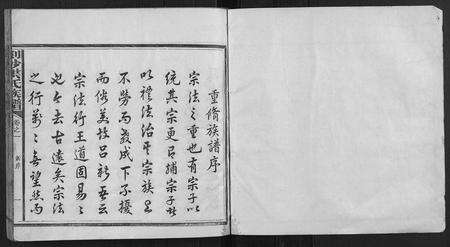 重脩族譜序
宗法之重也有宗子以
統其宗更有輔宗子於
以禮法治其宗族是
不勞而教成下不擾
而俗美故呂新吾云
宗法行王道固易易
也今去古遠矣宗法
之行萬萬無望然而
氏族譜
卷之一